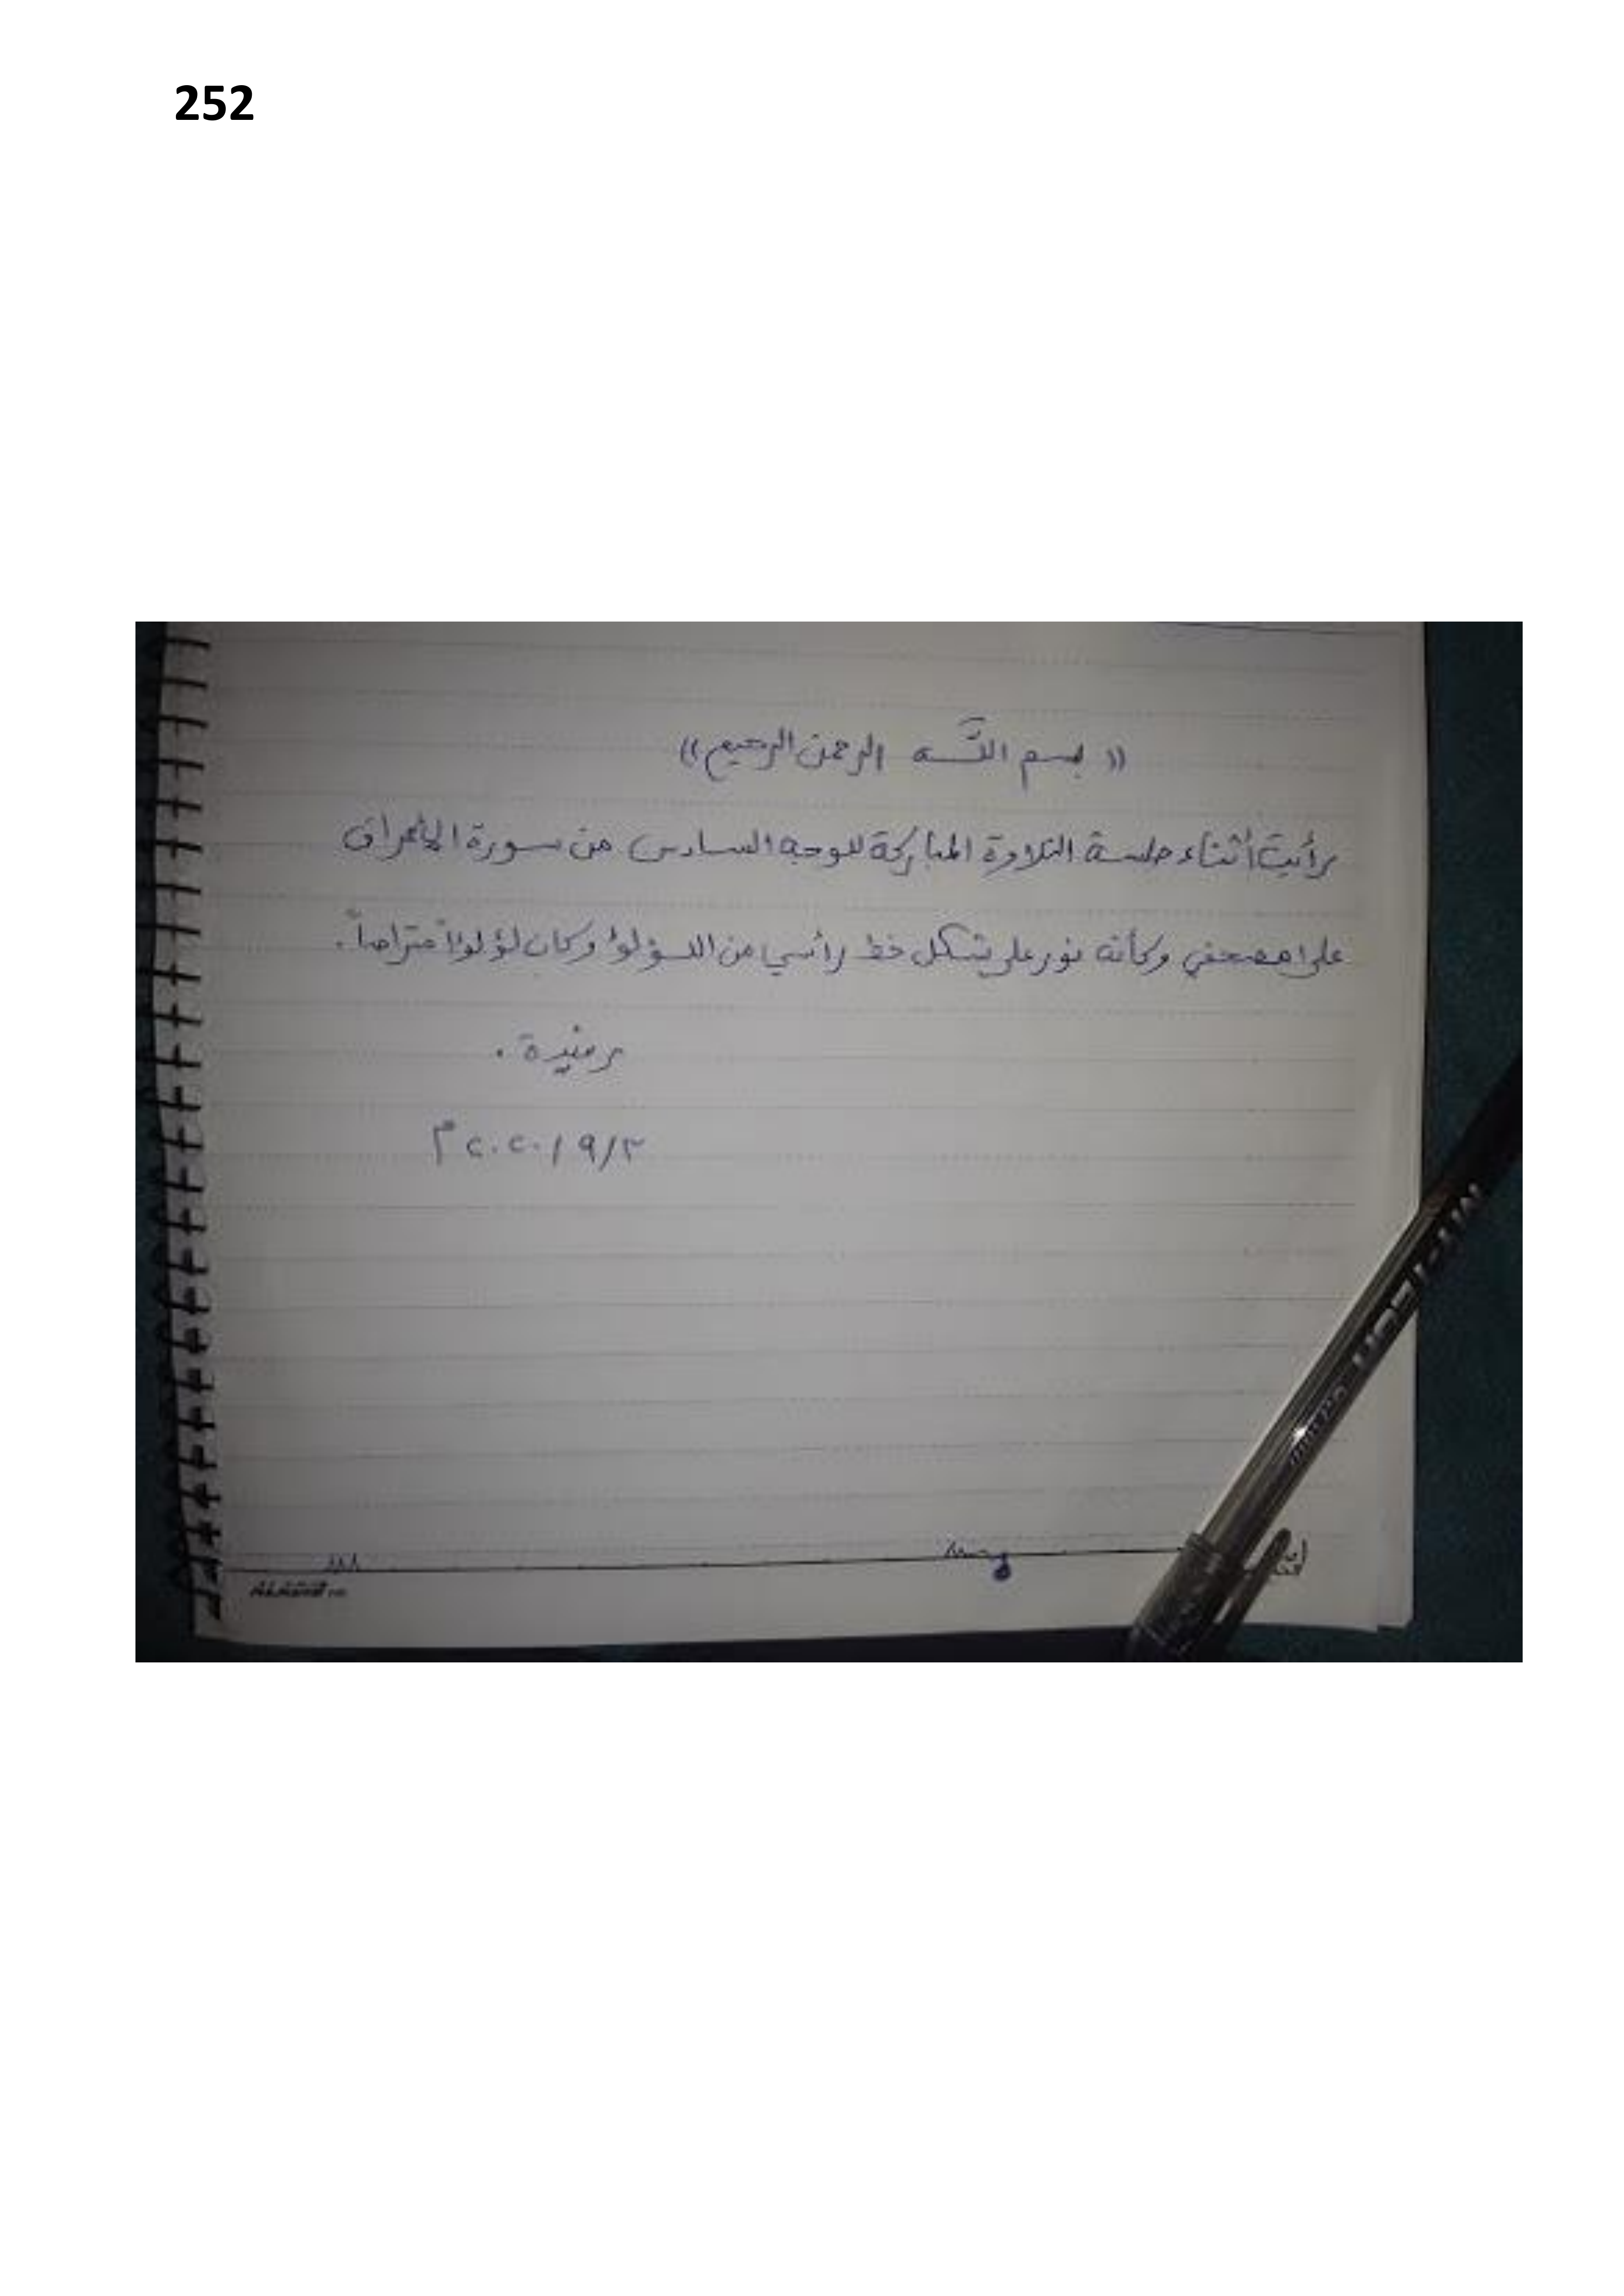 252
(( بسم اللَّه الرحمن الرحيم ))
رأيت أثناء جلسة التلاوة المباركة للوجه السادس من سورة الأعراف
على مصحفي وكأنه نور على شكل خط رأسي من اللؤلؤ وكان لؤلؤاً متراصاً.
رفيدة.
٢/٩/٢٠٢٠م